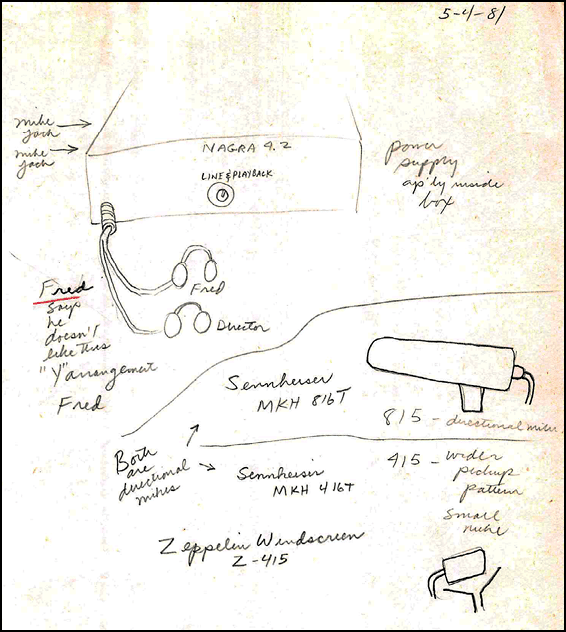 5-4-81
mike
jack
mike
jack
NAGRA 4.2
LINE & PLAYBACK
power
supply
ap'ly inside
box
Fred
Director
Fred
says
he
doesn't
like this
"Y" arrangement
Fred
Sennheiser
MKH 816T
815 - directional mike
Both
are
directional
mikes
Sennheiser
MKH 416T
415 - wider
pickup
pattern
small
mike
Zeppelin Windscreen
Z-415